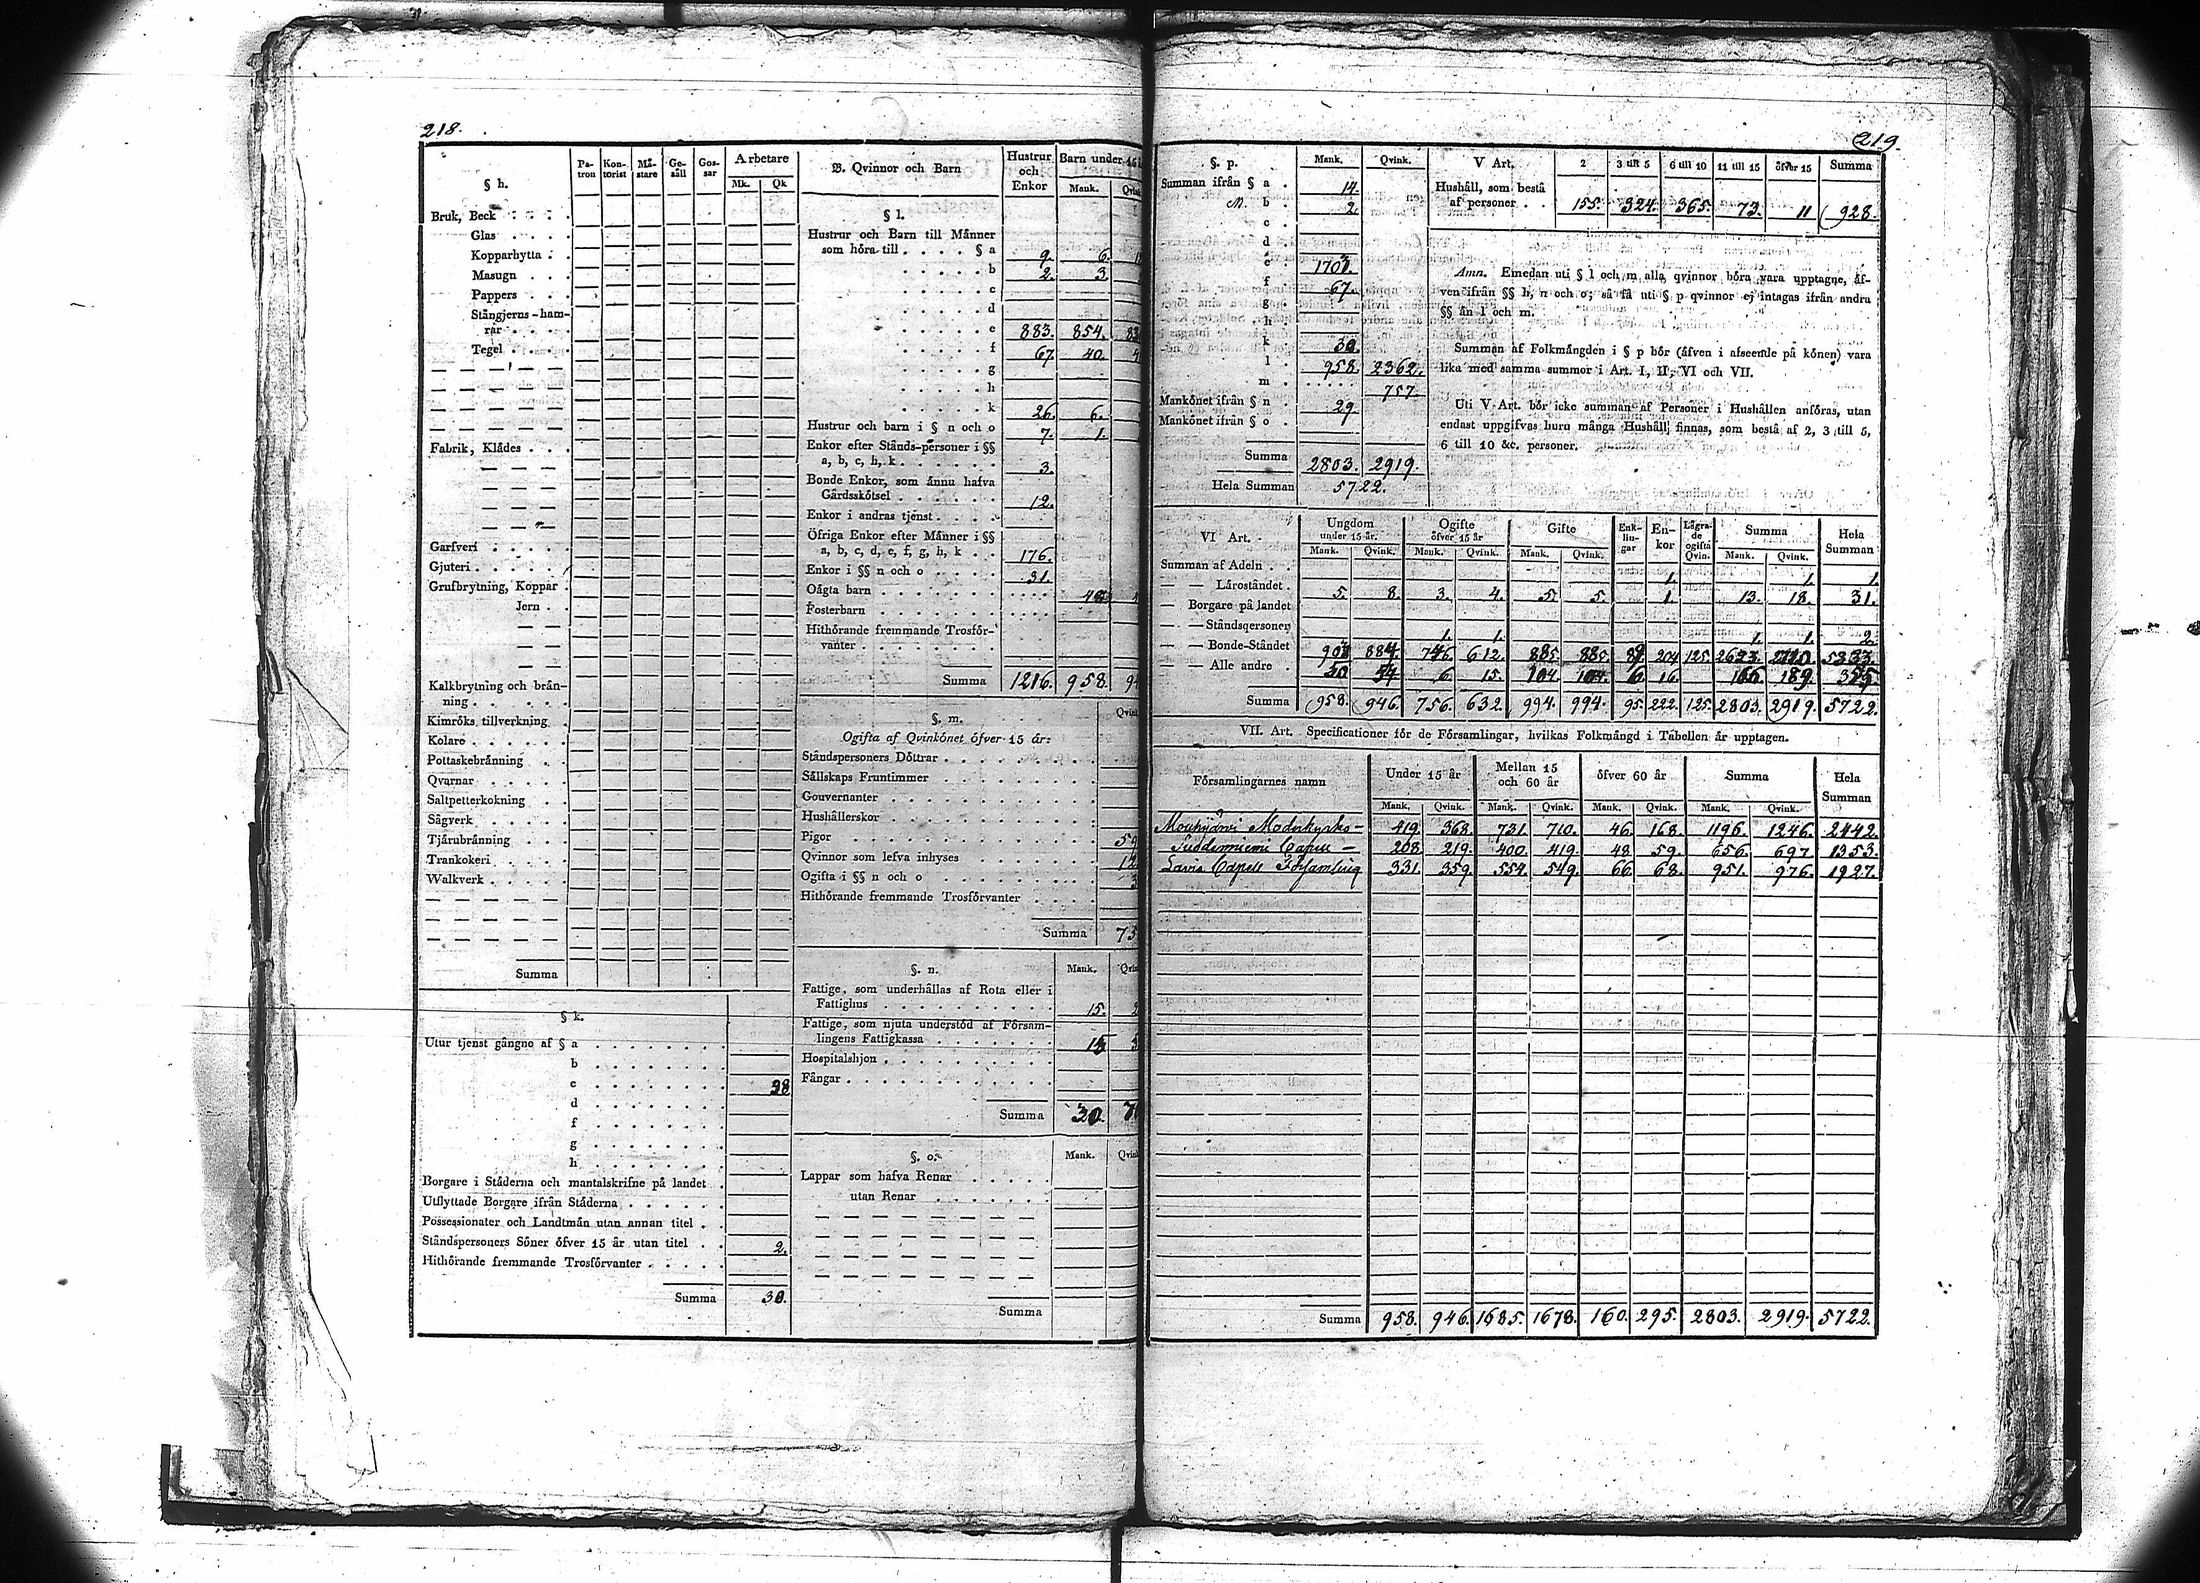 218.
§ h.
Pa-tron Kon-torist Må-stare Ge-säll Gos-sar Arbetare
Mk. Qk
Bruk, Beck
Glas
Kopparhytta
Masugn
Pappers
Stångjerns-ham-
rar
Tegel
Fabrik, Klädes
Garfveri
Gjuteri
Grufbrytning, Koppar
Jern
Kalkbrytning och brän-
ning
Kimröks tillverkning
Kolare
Pottaskebränning
Qvarnar
Saltpetterkokning
Sågverk
Tjärubränning
Trankokeri
Walkverk
Summa
§ k.
Utur tjenst gångne af § a
b
c 28
d
f
g
h
Borgare i Städerna och mantalskrifne på landet
Utflyttade Borgare ifrån Städerna
Possessionater och Landtmän utan annan titel
Ståndspersoners Söner öfver 15 år utan titel 2.
Hithörande fremmande Trosförvanter
Summa 30.
B. Qvinnor och Barn Hustrur och Enkor Barn under 15
Mank.
§ l.
Hustrur och Barn till Männer
som höra till § a 9. 6.
b 2. 3
c
d
e 883. 854.
f 67. 40.
g
h
k 26. 6.
Hustrur och barn i § n och o 7. 1.
Enkor efter Stånds-personer i §§
a, b, c, h, k 3.
Bonde Enkor, som ännu hafva
Gårdsskötsel 12.
Enkor i andras tjenst
Öfriga Enkor efter Männer i §§
a, b, c, d, e, f, g, h, k 176.
Enkor i §§ n och o 31.
Oägta barn
Fosterbarn
Hithörande fremmande Trosför-
vanter
Summa 1216. 958.
§. m.
Ogifta af Qvinkönet öfver 15 år:
Ståndspersoners Döttrar
Sällskaps Fruntimmer
Gouvernanter
Hushållerskor
Pigor
Qvinnor som lefva inhyses
Ogifta i §§ n och o
Hithörande fremmande Trosförvanter
Summa
§. n. Mank.
Fattige, som underhållas af Rota eller i
Fattighus 15.
Fattige, som njuta understöd af Försam-
lingens Fattigkassa 15
Hospitalshjon
Fångar
Summa 30.
§. o. Mank.
Lappar som hafva Renar
utan Renar
Summa
219.
§. p. Mank. Qvink.
Summan ifrån § a 14.
b 2.
c
d
e 1703.
f 67.
g
h
k 30.
l 958. 2362.
m 757.
Mankönet ifrån § n 29.
Mankönet ifrån § o
Summa 2803. 2919.
Hela Summan 5722.
V Art. 2 3 till 5 6 till 10 11 till 15 öfver 15 Summa
Hushåll, som bestå
af personer 155. 324. 365. 73. 11 928.
Anm. Emedan uti § l och m alla qvinnor böra vara upptagne, äf-
ven ifrån §§ h, n och o; så få uti § p qvinnor ej intagas ifrån andra
§§ än l och m.
Summan af Folkmängden i § p bör (äfven i afseende på könen) vara
lika med samma summor i Art. I, II, VI och VII.
Uti V Art. bör icke summan af Personer i Hushållen anföras, utan
endast uppgifvas huru många Hushåll finnas, som bestå af 2, 3 till 5,
6 till 10 &c. personer.
VI Art. Ungdom under 15 år. Ogifte öfver 15 år Gifte Enk-lin-gar En-kor Lägra-de ogifta Qvin. Summa Hela Summan
Mank. Qvink. Mank. Qvink. Mank. Qvink. Mank. Qvink.
Summan af Adeln 1. 1. 1.
— — Låroståndet 5. 8. 3. 4. 5. 5. 1. 13. 18. 31.
— Borgare på landet
— — Ståndspersoner 1. 1. 1. 1. 2.
— — Bonde-Ståndet 903 884. 746. 612. 885. 880. 89 204 125. 2623. 2710. 5333.
— — Alle andre 50 54 6. 15. 104. 104. 6 16. 166. 189. 355
Summa 958. 946. 756. 632. 994. 994. 95. 222. 125. 2803. 2919. 5722.
VII. Art. Specificationer för de Församlingar, hvilkas Folkmängd i Tabellen är upptagen.
Församlingarnes namn Under 15 år Mellan 15 och 60 år öfver 60 år Summa Hela Summan
Mank. Qvink. Mank. Qvink. Mank. Qvink. Mank. Qvink.
Mouhijärvi Moderkyrko- 419. 368. 731. 710. 46. 168. 1196. 1246. 2442.
Suodenniemi Capell - 208 219. 400. 419. 48 59. 656. 697 1353.
Lavia Capell Församling 331. 359. 554. 549. 66. 68. 951. 976. 1927.
Summa 958. 946. 1685. 1678. 160. 295. 2803. 2919. 5722.